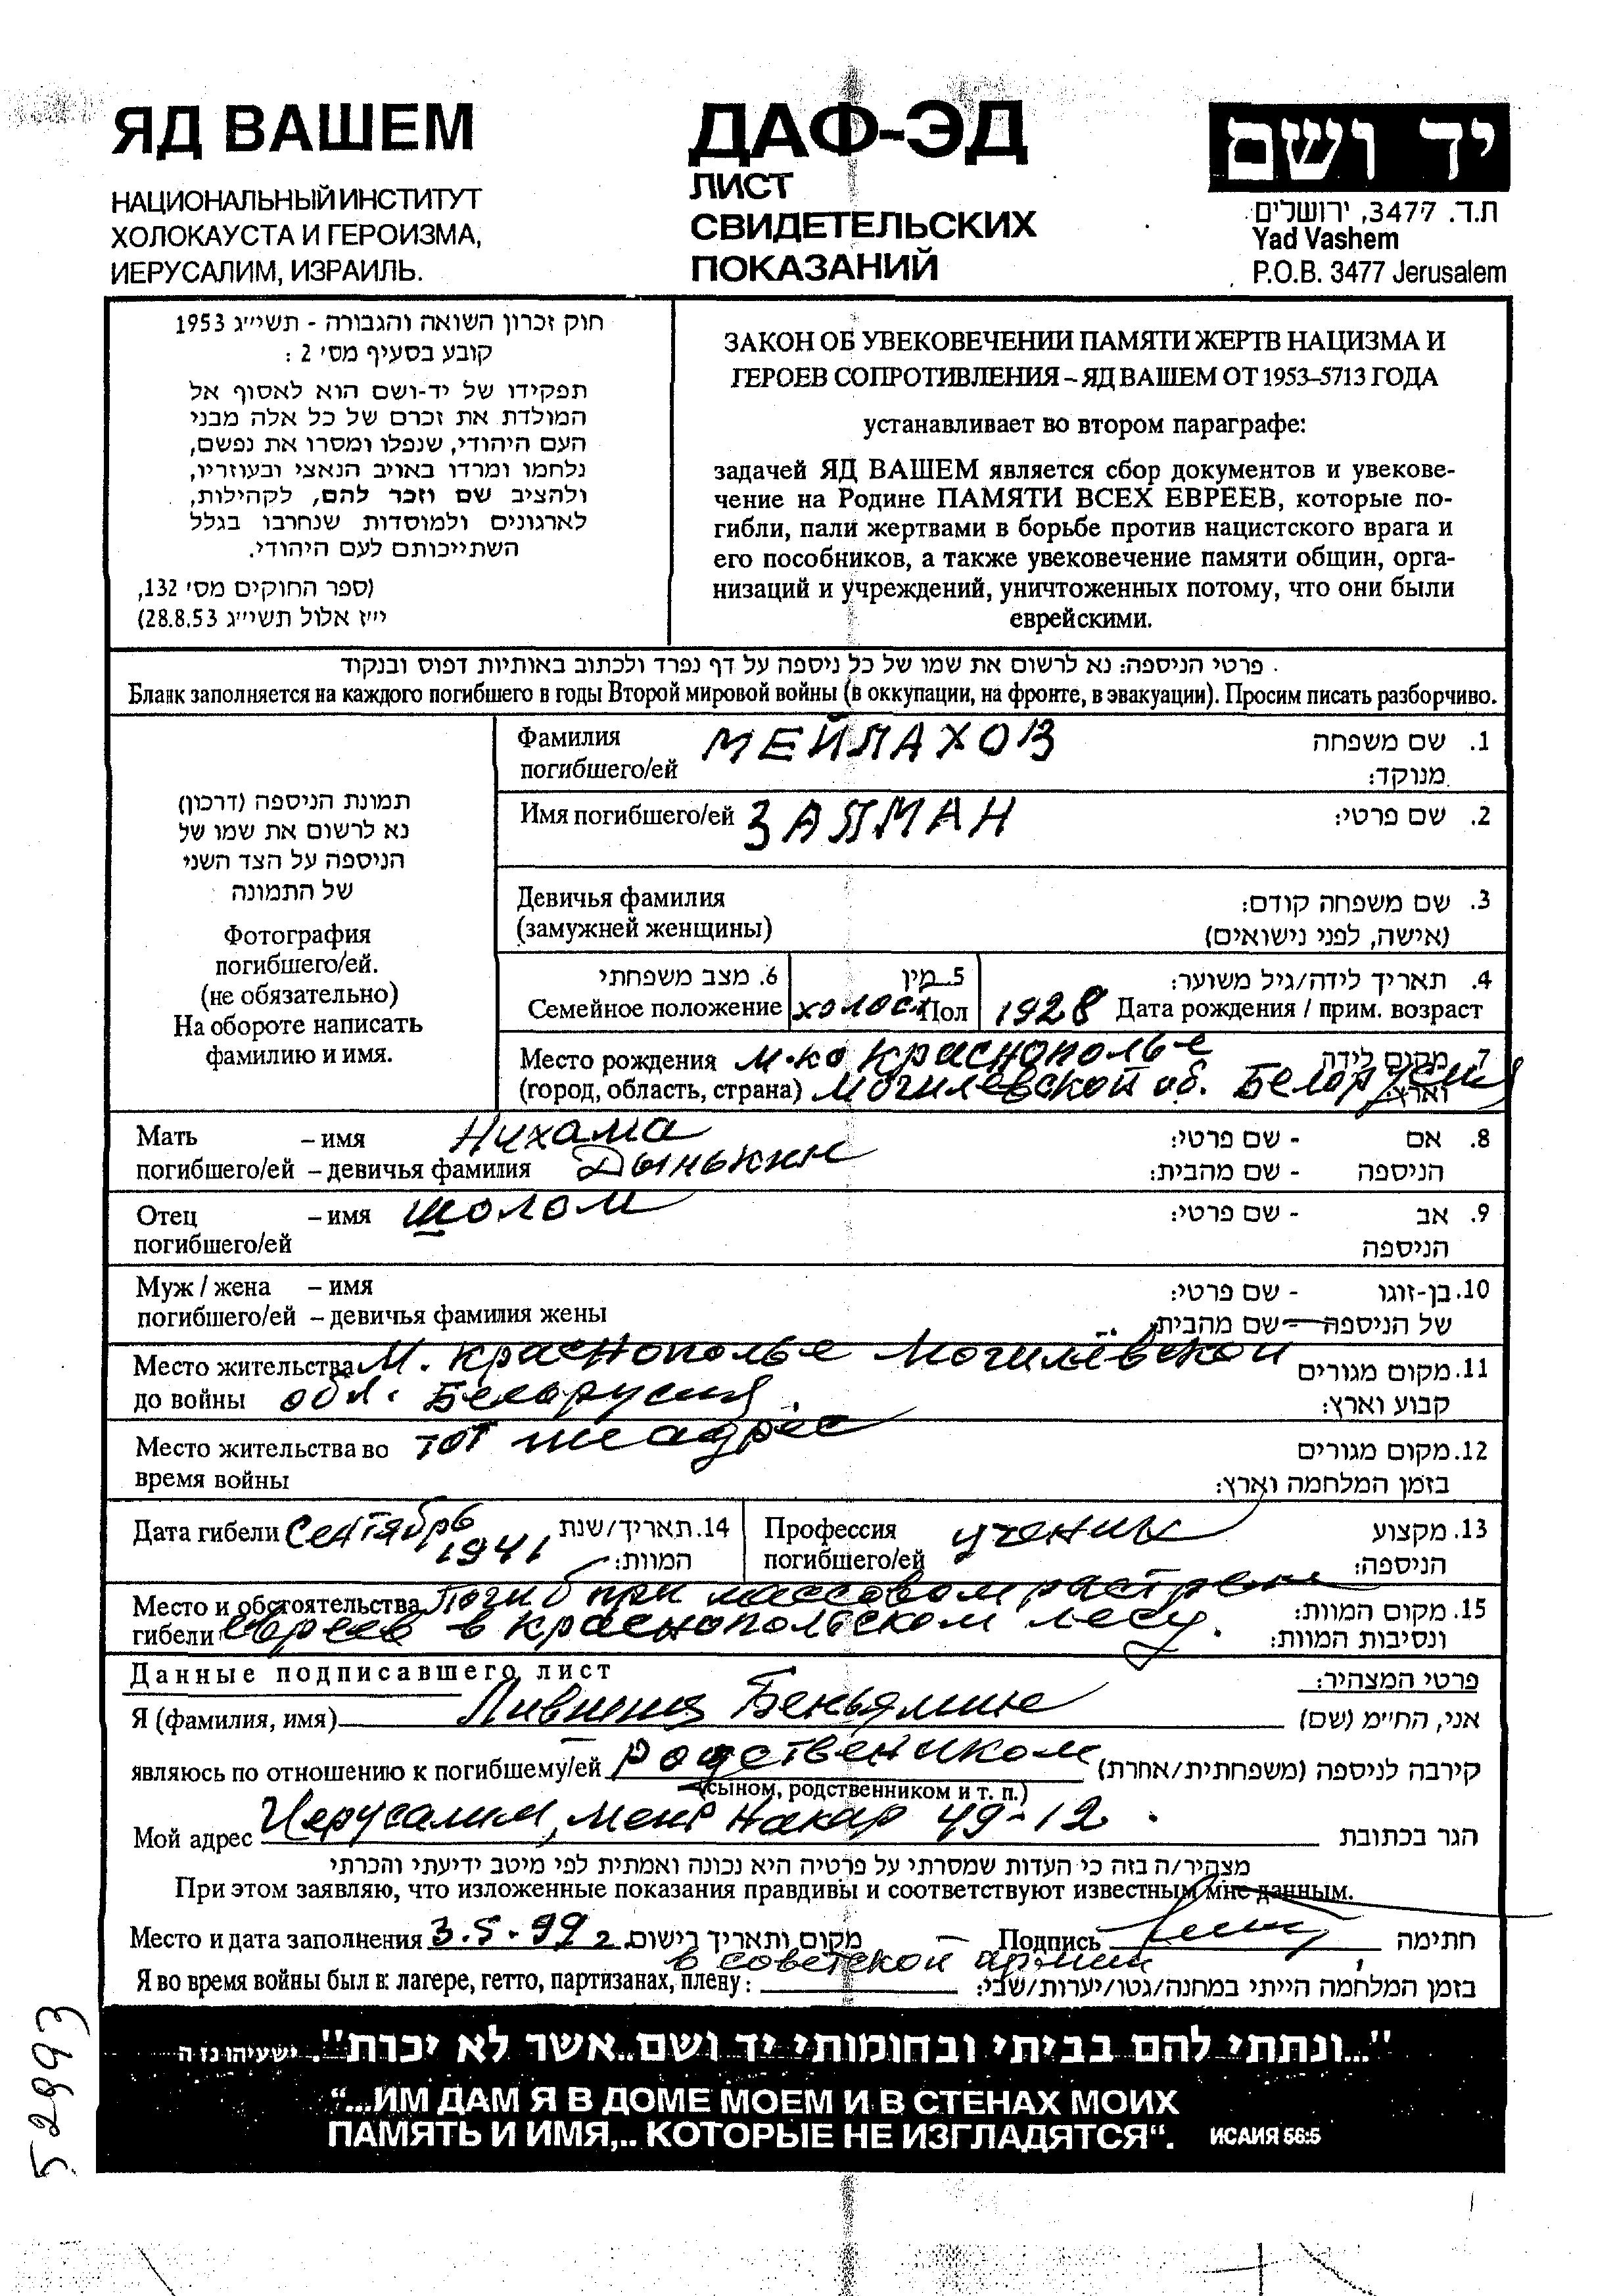 ЯД ВАШЕМ
НАЦИОНАЛЬНЫЙ ИНСТИТУТ
ХОЛОКАУСТА И ГЕРОИЗМА,
ИЕРУСАЛИМ, ИЗРАИЛЬ.
ДАФ-ЭД
ЛИСТ
СВИДЕТЕЛЬСКИХ
ПОКАЗАНИЙ
יד ושם
ת.ד. 3477, ירושלים
Yad Vashem
P.O.B. 3477 Jerusalem
חוק זכרון השואה והגבורה - תשי״ג 1953
קובע בסעיף מס׳ 2 :
תפקידו של יד-ושם הוא לאסוף אל
המולדת את זכרם של כל אלה מבני
העם היהודי, שנפלו ומסרו את נפשם,
נלחמו ומרדו באויב הנאצי ובעוזריו,
ולהציב שם וזכר להם, לקהילות,
לארגונים ולמוסדות שנחרבו בגלל
השתייכותם לעם היהודי.
(ספר החוקים מס׳ 132,
י״ז אלול תשי״ג 28.8.53)
ЗАКОН ОБ УВЕКОВЕЧЕНИИ ПАМЯТИ ЖЕРТВ НАЦИЗМА И
ГЕРОЕВ СОПРОТИВЛЕНИЯ – ЯД ВАШЕМ ОТ 1953–5713 ГОДА
устанавливает во втором параграфе:
задачей ЯД ВАШЕМ является сбор документов и увекове-
чение на Родине ПАМЯТИ ВСЕХ ЕВРЕЕВ, которые по-
гибли, пали жертвами в борьбе против нацистского врага и
его пособников, а также увековечение памяти общин, орга-
низаций и учреждений, уничтоженных потому, что они были
еврейскими.
פרטי הניספה: נא לרשום את שמו של כל ניספה על דף נפרד ולכתוב באותיות דפוס ובנקוד
Бланк заполняется на каждого погибшего в годы Второй мировой войны (в оккупации, на фронте, в эвакуации). Просим писать разборчиво.
תמונת הניספה (דרכון)
נא לרשום את שמו של
הניספה על הצד השני
של התמונה
Фотография
погибшего/ей.
(не обязательно)
На обороте написать
фамилию и имя.
Фамилия МЕЙЛАХОВ 1. שם משפחה
погибшего/ей מנוקד:
Имя погибшего/ей ЗАЛМАН 2. שם פרטי:
Девичья фамилия 3. שם משפחה קודם:
(замужней женщины) (אישה, לפני נישואים)
6. מצב משפחתי 5. מין 4. תאריך לידה/גיל משוער:
Семейное положение холост Пол 1928 Дата рождения / прим. возраст
Место рождения м-ко Краснополье 7. מקום לידה
(город, область, страна) Могилевской об. Белоруссия וארץ:
Мать – имя Нихама 8. אם - שם פרטי:
погибшего/ей – девичья фамилия Дынькин הניספה - שם מהבית:
Отец – имя Шолом 9. אב - שם פרטי:
погибшего/ей הניספה
Муж / жена – имя 10. בן-זוגו - שם פרטי:
погибшего/ей – девичья фамилия жены של הניספה - שם מהבית:
Место жительства М. Краснополье Могилёвской 11. מקום מגורים
до войны обл. Белорусия. קבוע וארץ:
Место жительства во тот же адрес 12. מקום מגורים
время войны בזמן המלחמה וארץ:
Дата гибели Сентябрь 14. תאריך/שנת Профессия ученик 13. מקצוע
1941 המוות: погибшего/ей הניספה:
Место и обстоятельства Погиб при массовом растреле 15. מקום המוות:
гибели евреев в Краснопольском лесу. ונסיבות המוות:
Данные подписавшего лист פרטי המצהיר:
Я (фамилия, имя) Лившиц Беньямин אני, הח״מ (שם)
являюсь по отношению к погибшему/ей родствеником קירבה לניספה (משפחתית/אחרת)
(сыном, родственником и т. п.)
Мой адрес Иерусалим, Меир Накар 49-12. הגר בכתובת
מצהיר/ה בזה כי העדות שמסרתי על פרטיה היא נכונה ואמתית לפי מיטב ידיעתי והכרתי
При этом заявляю, что изложенные показания правдивы и соответствуют известным мне данным.
Место и дата заполнения 3.5.99 г. מקום ותאריך רישום Подпись חתימה
в советской армии
Я во время войны был в: лагере, гетто, партизанах, плену: בזמן המלחמה הייתי במחנה/גטו/יערות/שבי:
"...ונתתי להם בביתי ובחומותי יד ושם..אשר לא יכרת". ישעיהו נו ה
“...ИМ ДАМ Я В ДОМЕ МОЕМ И В СТЕНАХ МОИХ
ПАМЯТЬ И ИМЯ,.. КОТОРЫЕ НЕ ИЗГЛАДЯТСЯ“. ИСАИЯ 56:5
52993